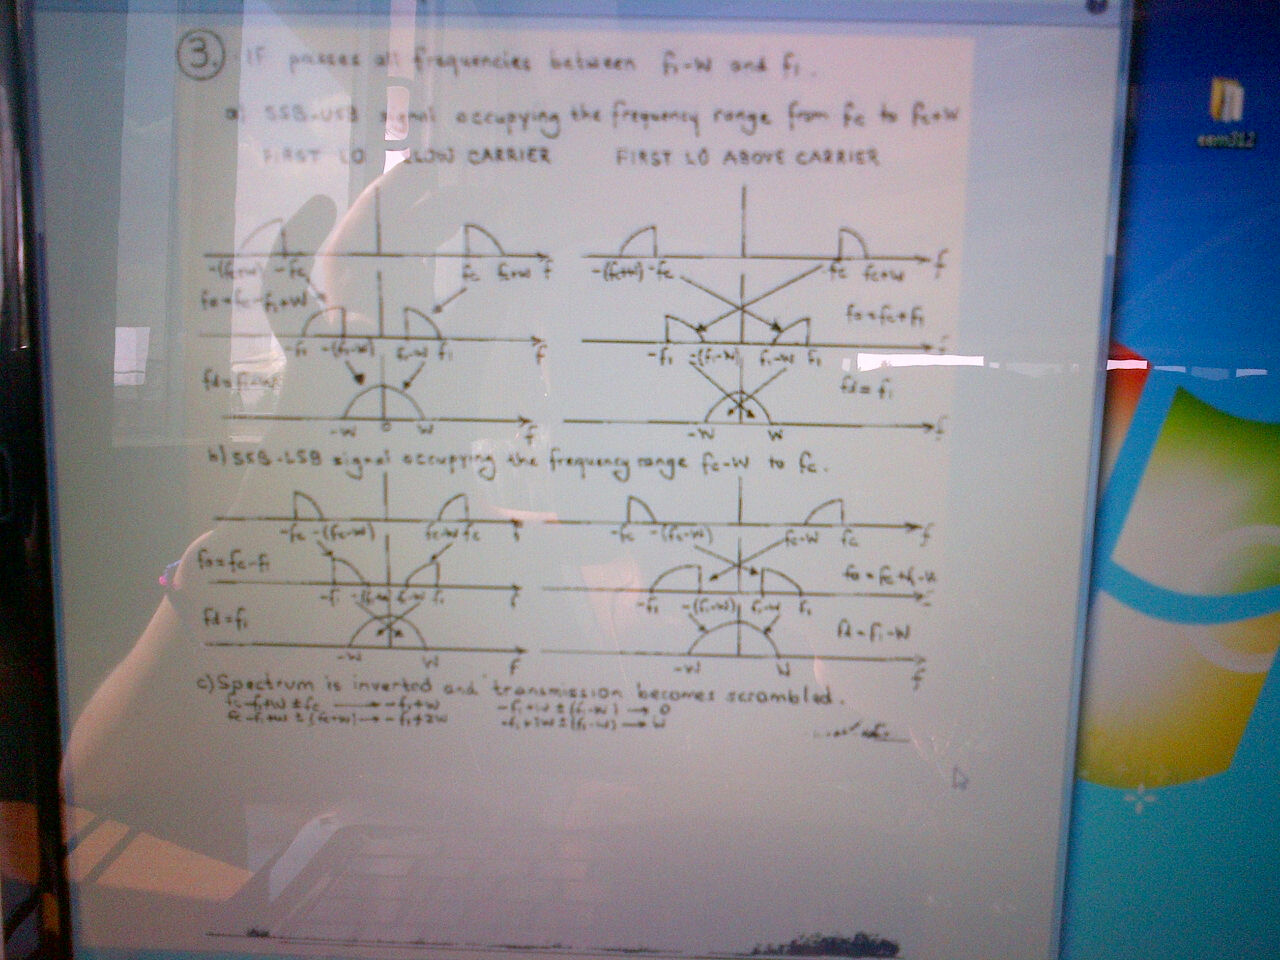 3. IF passes all frequencies between f₁-W and f₁.
a) SSB-USB signal occupying the frequency range from fc to fc+W
FIRST LO BELOW CARRIER FIRST LO ABOVE CARRIER
-(fc+W) -fc fc fc+W f -(fc+W) -fc fc fc+W f
fo=fc-f₁+W fo=fc+f₁
-f₁ -(f₁-W) f₁-W f₁ f -f₁ -(f₁-W) f₁-W f₁ f
fd=f₁-W fd=f₁
-W 0 W f -W W f
b) SSB-LSB signal occupying the frequency range fc-W to fc.
-fc -(fc-W) fc-W fc f -fc -(fc-W) fc-W fc f
fo=fc-f₁ fo=fc+f₁-W
-f₁ -(f₁-W) f₁-W f₁ f -f₁ -(f₁-W) f₁-W f₁ f
fd=f₁ fd=f₁-W
-W W f -W W f
c) Spectrum is inverted and transmission becomes scrambled.
fc-f₁+W ± fc → -f₁+W -f₁+W ± (f₁-W) → 0
fc-f₁+W ± (fc+W) → -f₁+2W -f₁+2W ± (f₁-W) → W
eem312